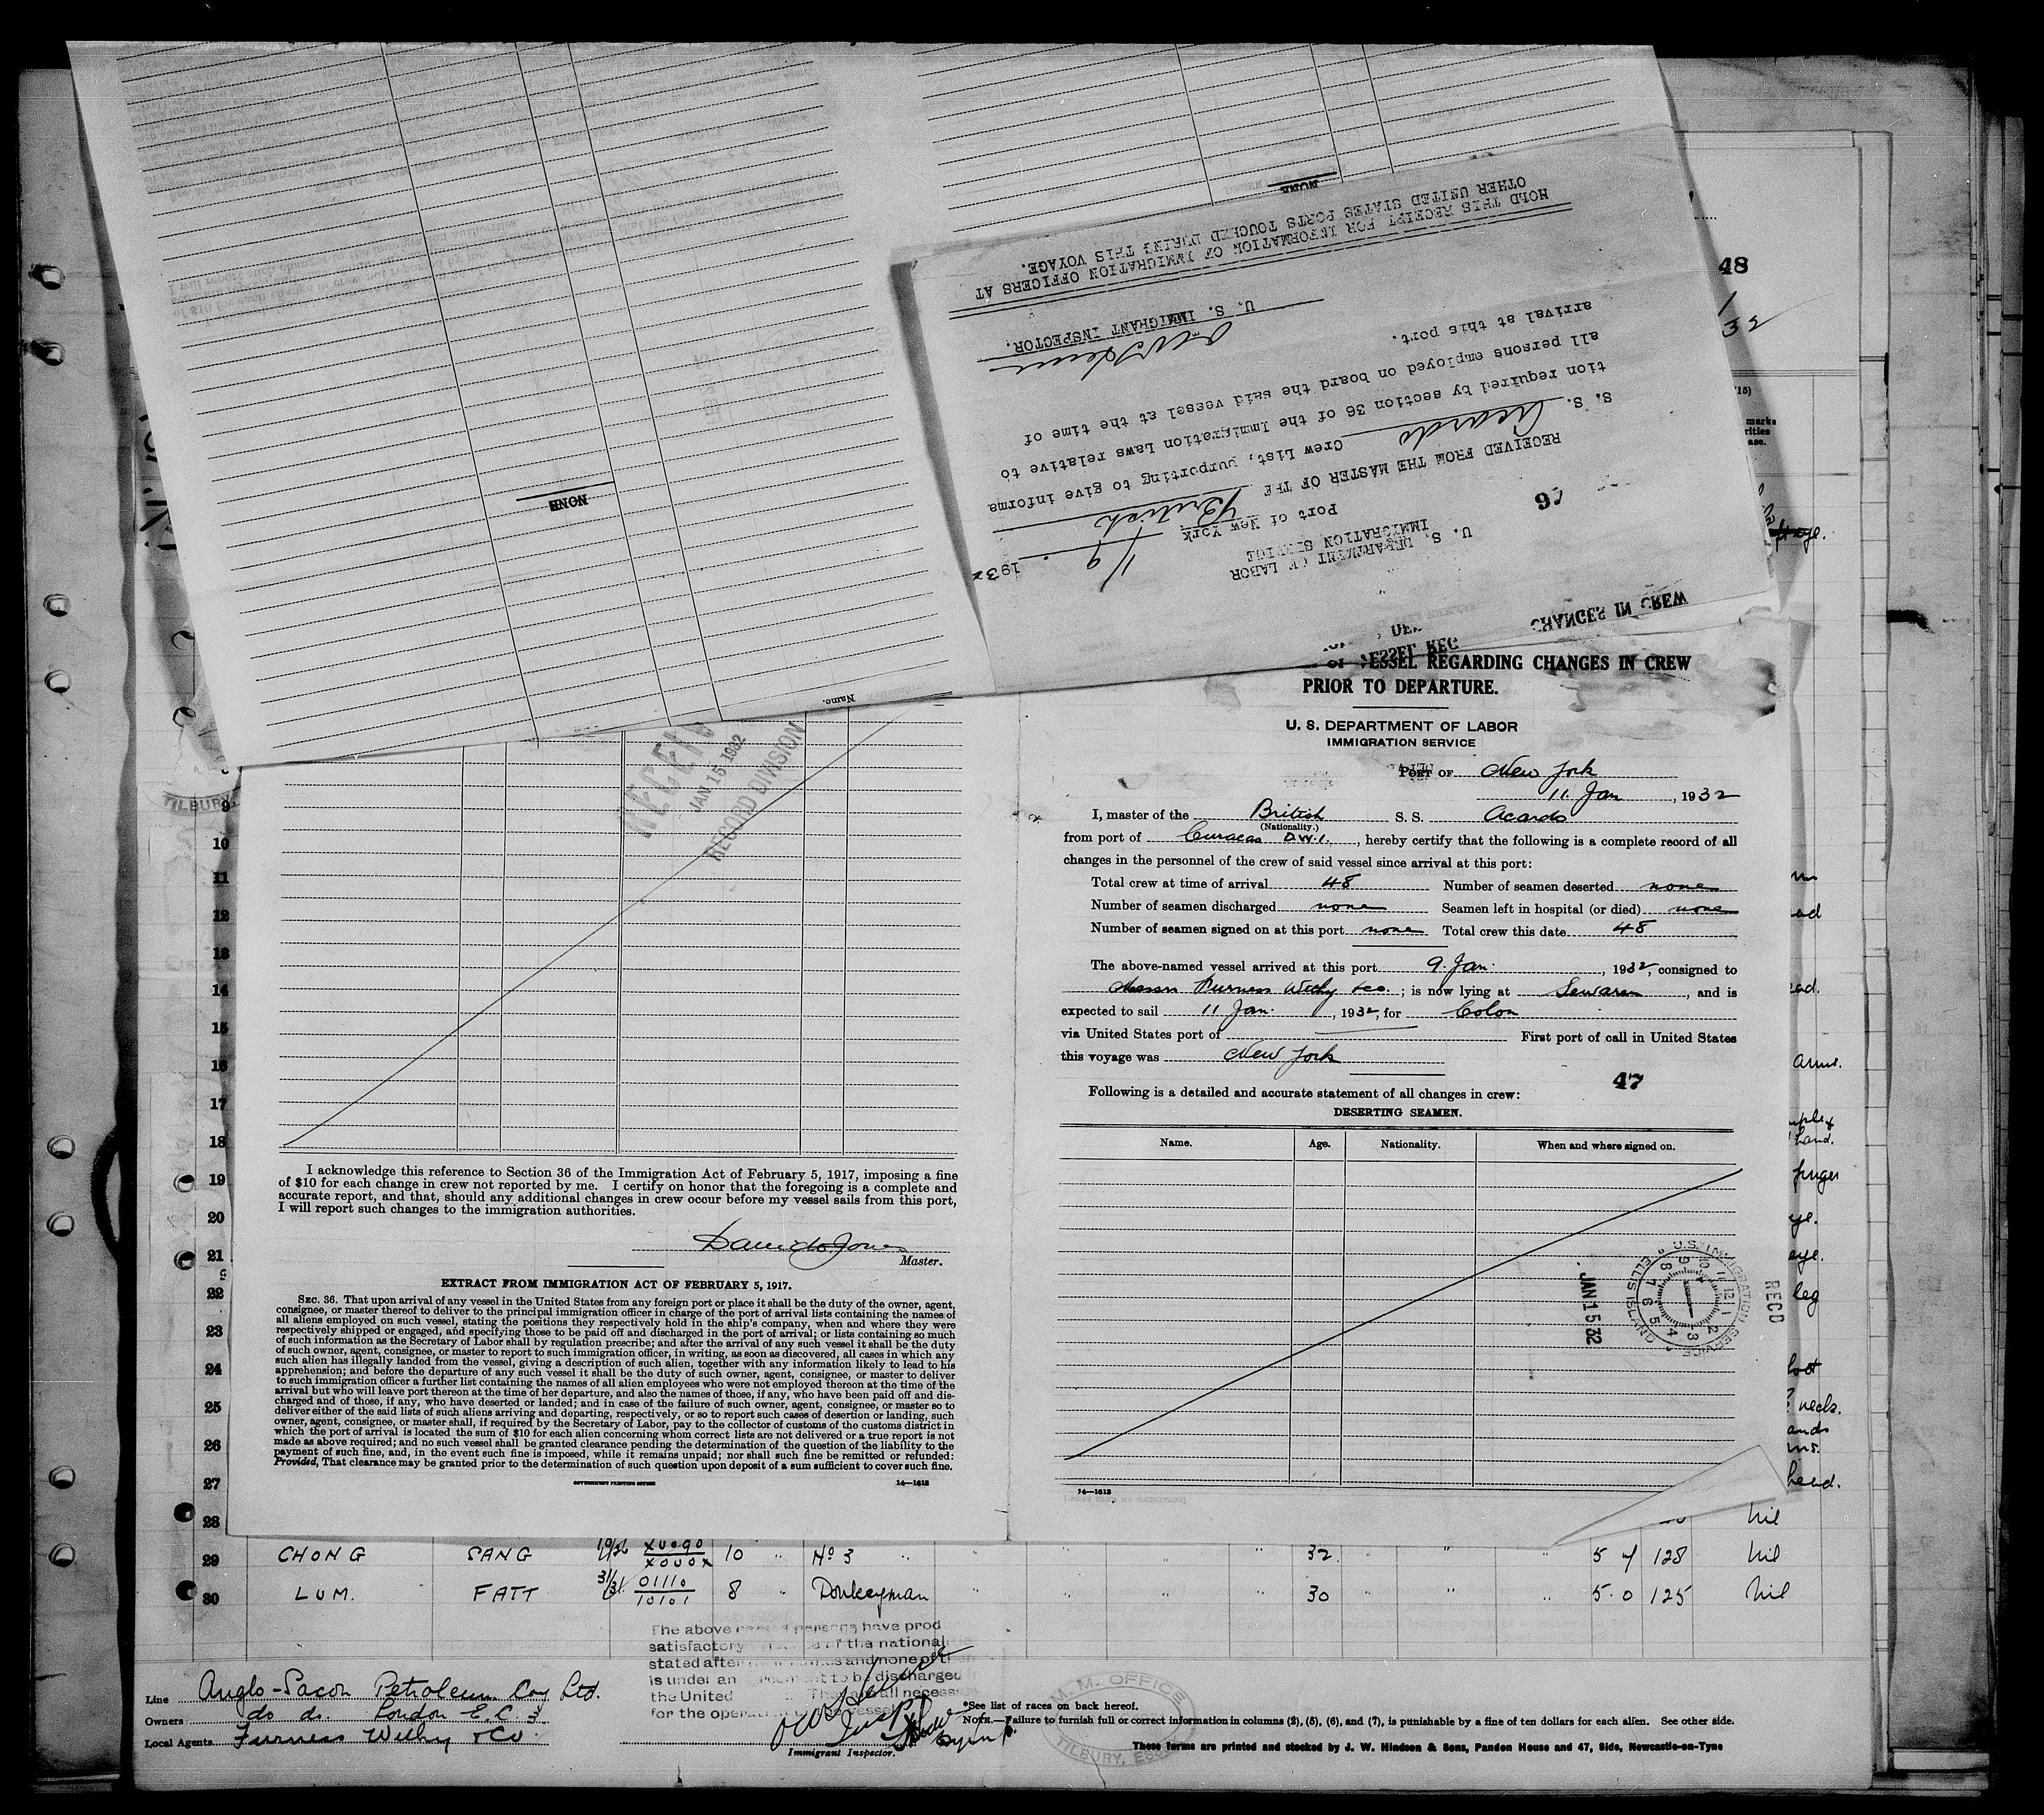 48
32
NONE
NONE
HOLD THIS RECEIPT FOR INFORMATION OF IMMIGRATION OFFICERS AT
OTHER UNITED STATES PORTS TOUCHED DURING THIS VOYAGE.
U. S. IMMIGRANT INSPECTOR.
arrival at this port.
all persons employed on board the said vessel at the time of
tion required by section 36 of the Immigration Laws relative to
S. S. Acardo Crew List, purporting to give informa
RECEIVED FROM THE MASTER OF THE British
Port of New York 1/9 1932
97
IMMIGRATION SERVICE
U. S. DEPARTMENT OF LABOR
CHANGES IN CREW
Name.
VESSEL REGARDING CHANGES IN CREW
PRIOR TO DEPARTURE.
U. S. DEPARTMENT OF LABOR
IMMIGRATION SERVICE
PORT OF New York
11 Jan, 1932
I, master of the British S. S. Acardo
(Nationality.)
from port of Curacao D.W.I., hereby certify that the following is a complete record of all
changes in the personnel of the crew of said vessel since arrival at this port:
Total crew at time of arrival 48 Number of seamen deserted none
Number of seamen discharged none Seamen left in hospital (or died) none
Number of seamen signed on at this port none Total crew this date 48
The above-named vessel arrived at this port 9. Jan., 1932, consigned to
Messrs Furness Withy &co.; is now lying at Sewaren, and is
expected to sail 11 Jan., 1932, for Colon
via United States port of First port of call in United States
this voyage was New York
47
Following is a detailed and accurate statement of all changes in crew:
DESERTING SEAMEN.
Name. Age. Nationality. When and where signed on.
JAN 15 32
U.S. IMMIGRATION SERVICE
ELLIS ISLAND
RECD
14—1613
JAN 15 1932
RECORD DIVISION
TILBURY
9
10
11
12
13
14
15
16
17
18
19
20
21
22
23
24
25
26
27
28
I acknowledge this reference to Section 36 of the Immigration Act of February 5, 1917, imposing a fine
of $10 for each change in crew not reported by me. I certify on honor that the foregoing is a complete and
accurate report, and that, should any additional changes in crew occur before my vessel sails from this port,
I will report such changes to the immigration authorities.
Master.
EXTRACT FROM IMMIGRATION ACT OF FEBRUARY 5, 1917.
SEC. 36. That upon arrival of any vessel in the United States from any foreign port or place it shall be the duty of the owner, agent,
consignee, or master thereof to deliver to the principal immigration officer in charge of the port of arrival lists containing the names of
all aliens employed on such vessel, stating the positions they respectively hold in the ship's company, when and where they were
respectively shipped or engaged, and specifying those to be paid off and discharged in the port of arrival; or lists containing so much
of such information as the Secretary of Labor shall by regulation prescribe; and after the arrival of any such vessel it shall be the duty
of such owner, agent, consignee, or master to report to such immigration officer, in writing, as soon as discovered, all cases in which any
such alien has illegally landed from the vessel, giving a description of such alien, together with any information likely to lead to his
apprehension; and before the departure of any such vessel it shall be the duty of such owner, agent, consignee, or master to deliver
to such immigration officer a further list containing the names of all alien employees who were not employed thereon at the time of the
arrival but who will leave port thereon at the time of her departure, and also the names of those, if any, who have been paid off and dis-
charged and of those, if any, who have deserted or landed; and in case of the failure of such owner, agent, consignee, or master so to
deliver either of the said lists of such aliens arriving and departing, respectively, or so to report such cases of desertion or landing, such
owner, agent, consignee, or master shall, if required by the Secretary of Labor, pay to the collector of customs of the customs district in
which the port of arrival is located the sum of $10 for each alien concerning whom correct lists are not delivered or a true report is not
made as above required; and no such vessel shall be granted clearance pending the determination of the question of the liability to the
payment of such fine, and, in the event such fine is imposed, while it remains unpaid; nor shall such fine be remitted or refunded:
Provided, That clearance may be granted prior to the determination of such question upon deposit of a sum sufficient to cover such fine.
GOVERNMENT PRINTING OFFICE 14—1613
nil
29 CHONG SANG 10 " No 3 " " " " 32 " " " 5 4 128 Nil
30 LUM. FATT 8 " Donkeyman " " " 30 " " " 5. 0 125 Nil
The above persons have prod
satisfactory of the national
stated after and none of
is under an to be discharged
the United
for the
Line Anglo-Saxon Petroleum Coy Ltd.
Owners do do. London E.C. 3.
Local Agents Furness Withy & Co.
Immigrant Inspector.
M.M. OFFICE
TILBURY, ESSEX
*See list of races on back hereof.
NOTE.—Failure to furnish full or correct information in columns (2), (5), (6), and (7), is punishable by a fine of ten dollars for each alien. See other side.
These forms are printed and stocked by J. W. Hindson & Sons, Pandon House and 47, Side, Newcastle-on-Tyne